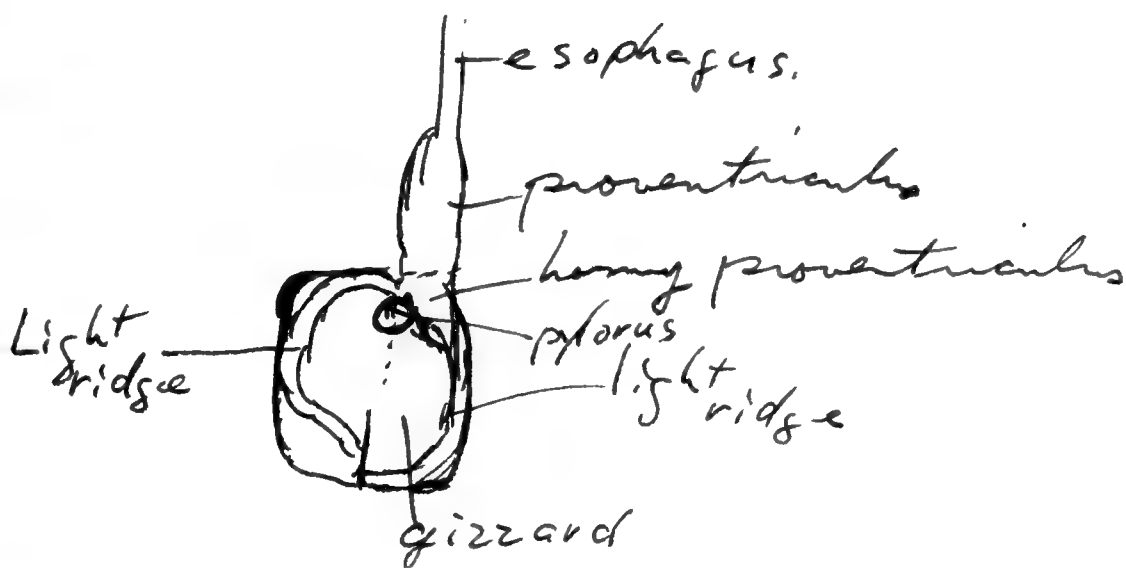 esophagus.
proventriculus
horny proventriculus
pylorus
Light
ridge
light
ridge
gizzard